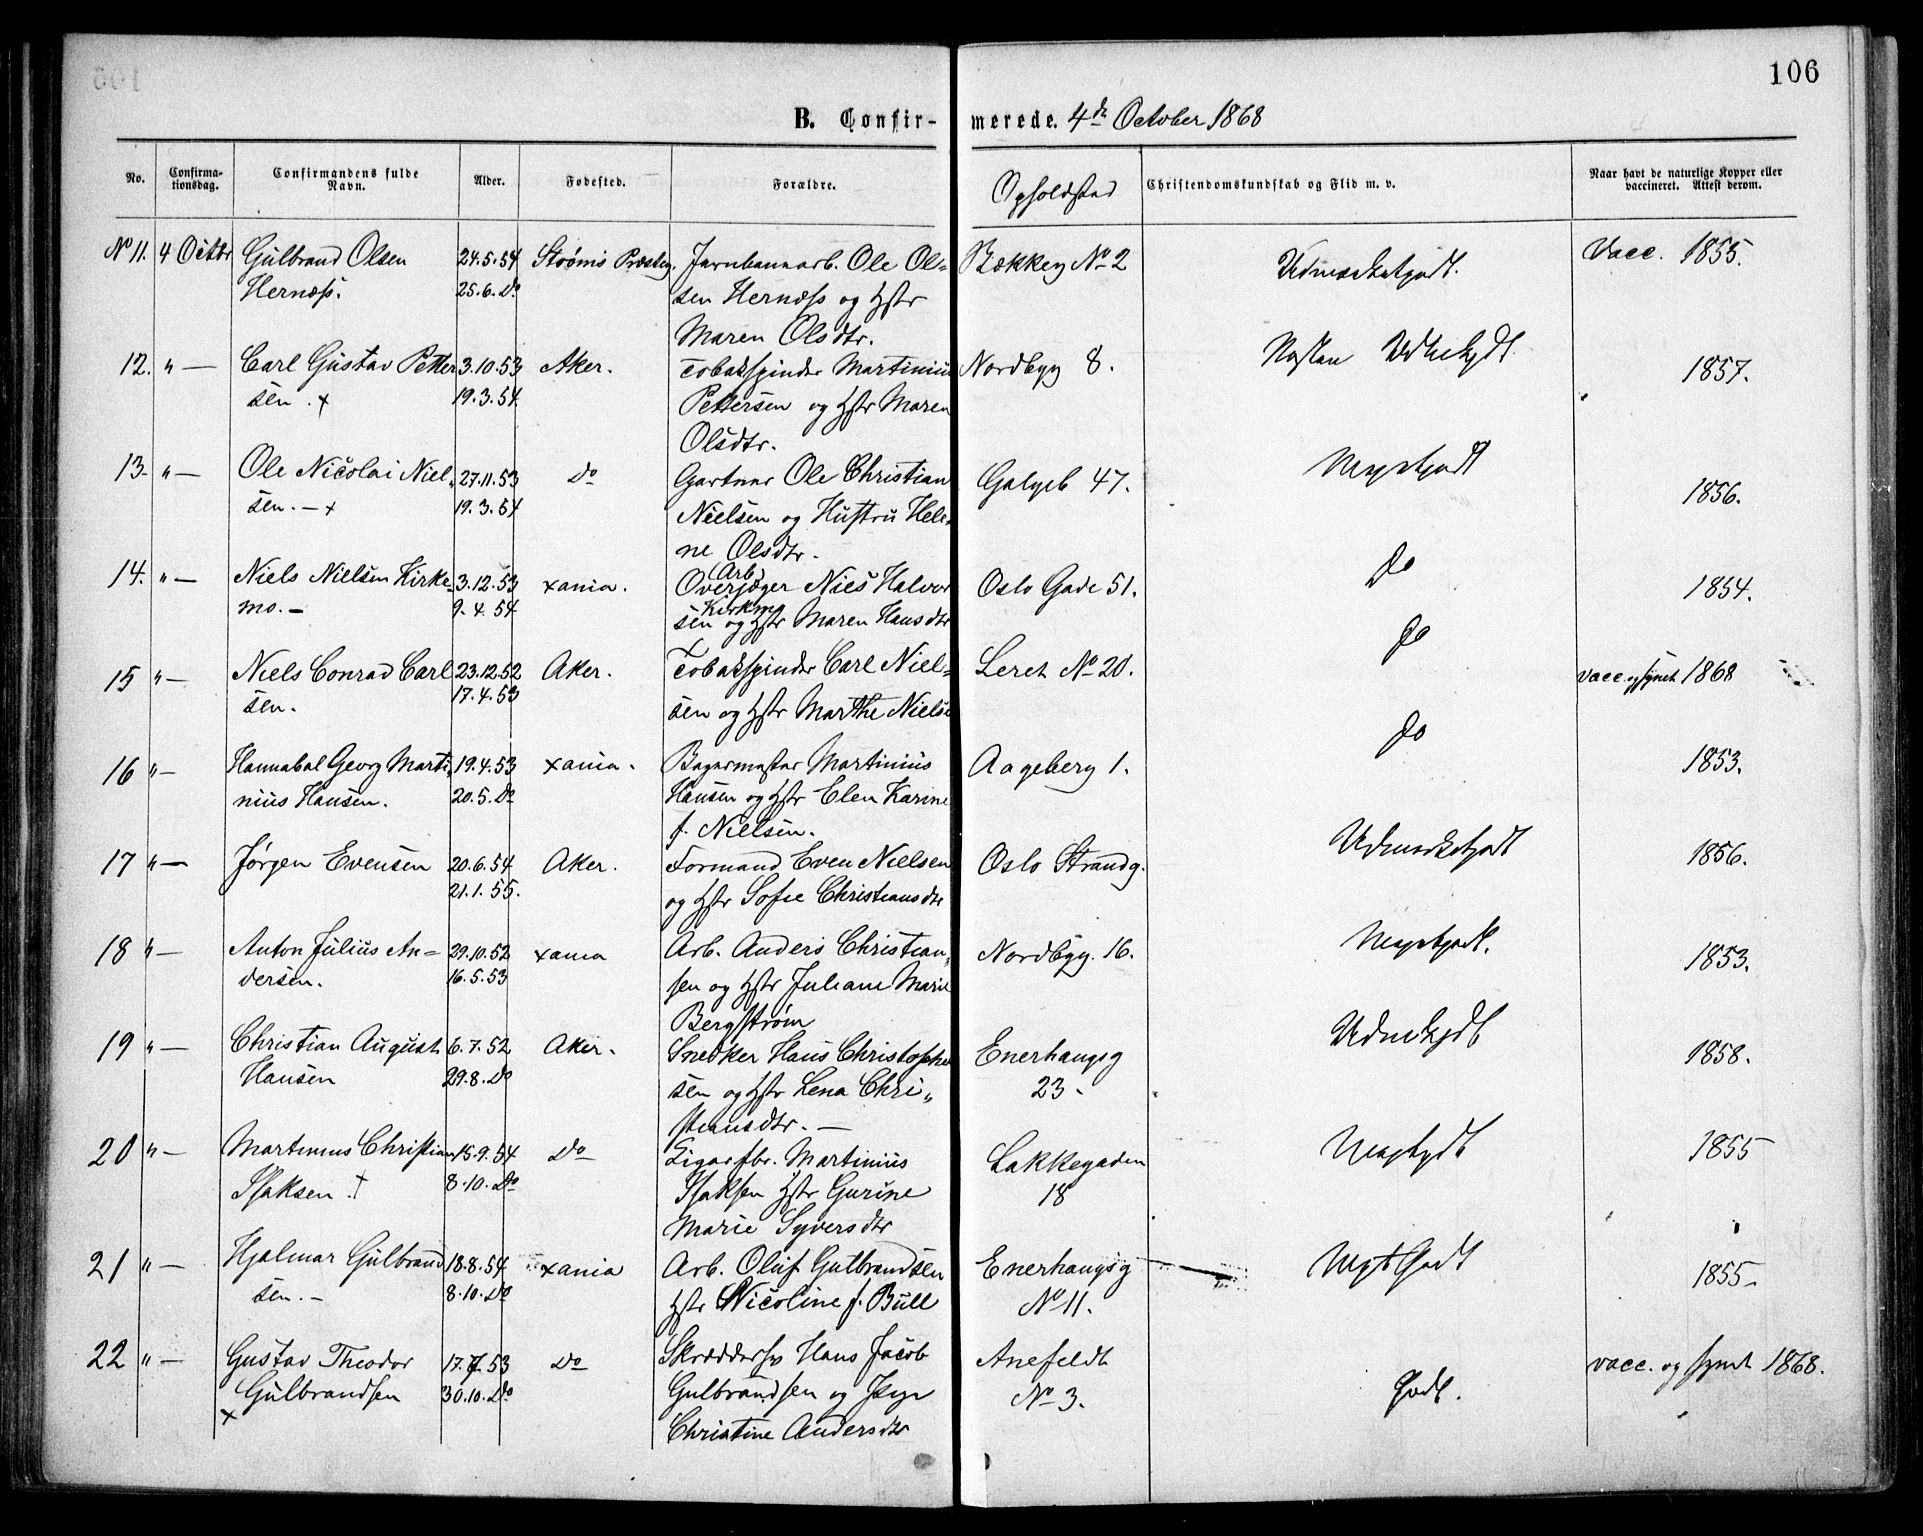 106
B. Confirmerede. 4de October 1868
No. Confirmationsdag. Confirmandens fulde Navn. Alder. Fødested. Forældre. Opholdsted Christendomskundskab og Flid m. v. Naar havt de naturlige Kopper eller vaccineret. Attest derom.
No 11. 4 Octbr Gulbrand Olsen 24.5.54 Strøms Præsteg. Jernbanearb. Ole Ol= Bækkeg No 2 Udmærketgodt. Vacc. 1855.
Hernæss. 25.6. Do sen Hernæss og Hstr
Maren Olsdtr.
12. " — Carl Gustav Petter 3.10.53 Aker. Tobakspinder Martinius Nordbyg 8. Næsten 1857.
sen . x 19.3.54 Pettersen og Hstr Maren
Olsdtr.
13. " — Ole Nicolai Niel„ 27.11.53 Do Gartner Ole Christian Galgeb 47. Megetgodt 1856.
sen. — x 19.3.54 Nielsen og Hustru Hele
ne Olsdtr.
14. " — Niels Nielsen Kirke 3.12.53 xania. Arb. Overjæger Niels Halvor Oslo Gade 51. Do 1854.
mo. — 9.4.54 sen Kirkmo og Hstr Maren Hansdtr
15 " — Niels Conrad Carl 23.12.52 Aker. Tobakspinder Carl Niel= Leret No 20. Do vacc. og synet 1868
sen. 17.4.53 sen og Hstr Marthe Nielsd
16 " — Hannabal Georg Marti„ 19.4.53 xania. Bagermester Martinius Aageberg 1. Do 1853.
nius Hansen. 20.5. Do Hansen og Hstr Elen Karine
f. Nielsen.
17 " — Jørgen Evensen 20.6.54 Aker. Formand Even Nielsen Oslo Strandg. Udmærketgodt 1856.
21.1.55. og Hstr Sofie Christiansdtr
18 " — Anton Julius An= 29.10.52 xania Arb. Anders Christian„ Nordbyg. 16. Megetgodt. 1853.
dersen. 16.5.53 sen og Hstr Juliane Marie
Bergstrøm
19 " — Christian August 6.7.52 Aker. Snedker Hans Christophe Enerhaugsg 1858.
Hansen 29.8. Do sen og Hstr Lena Chri„ 23.
stiansdtr. —
20 " — Martinius Christian 15.9.54 Do Sigarfbr. Martinius Lakkegaden Megetgodt 1855
Isaksen . † 8.10. Do Isaksen Hstr Gurine 18
Marie Syversdtr
21 " — Hjalmar Gulbrand 18.8.54 xania Arb. Oluf Gulbrandsen Enerhaugsg Meget Godt 1855.
sen. — 8.10. Do Hstr Nicoline f. Bull No 11.
22 " — Gustav Theodor 17.7.53 Do Skrædders Hans Jacob Anefeldt Godt. vacc. og synet 1868.
x Gulbrandsen 30.10. Do Gulbrandsen og No 3.
Christine Andersdtr